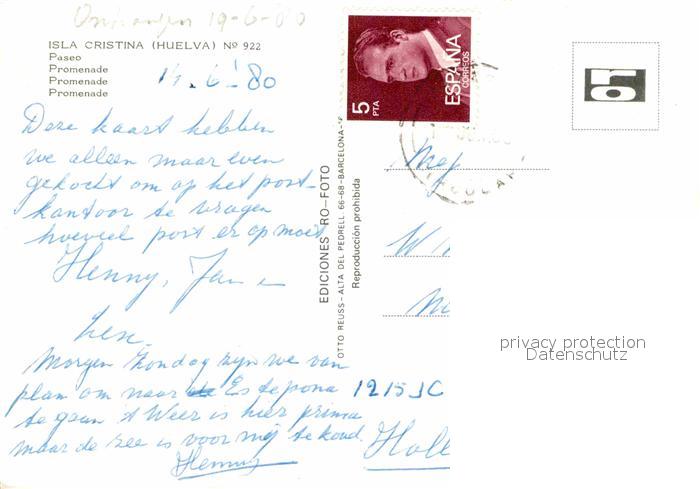 Ontvangen 19-6-80
ISLA CRISTINA (HUELVA) Nº 922
Paseo
Promenade
Promenade
Promenade
14.6-'80
Deze kaart hebben
we alleen maar even
gekocht om op het post-
kantoor te vragen
hoeveel post er op moet
Henny, Jan en
Morgen Zondag zijn we van
plan om naar Estepona
te gaan. 't Weer is hier prima
maar de zee is voor mij te koud.
Henny
EDICIONES RO-FOTO
OTTO REUSS - ALTA DEL PEDRELL, 66-68 - BARCELONA-16
Reproducción prohibida
5 PTA
ESPAÑA
CORREOS
Mej
1215 JC
Holl
privacy protection
Datenschutz